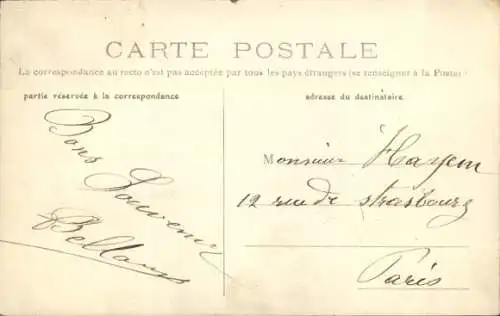 CARTE POSTALE
La correspondance au recto n'est pas acceptée par tous les pays étrangers (se renseigner à la Poste)
partie réservée à la correspondance
adresse du destinataire.
Bons
Souvenir
Monsieur Hayem
12 rue de strasbourg
Paris